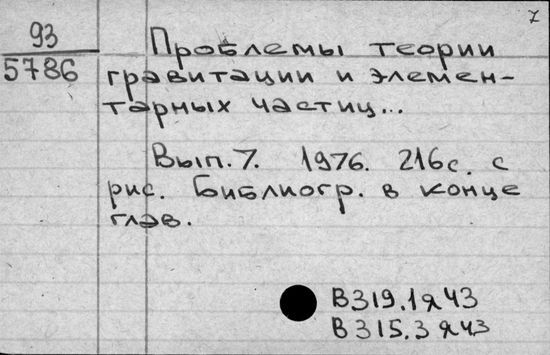 7
93
5786
Проблемы теории
гравитации и элемен-
тарных частиц...
Вып. 7. 1976. 216 с. с
рис. Библиогр. в конце
глав.
В319.1я43
В315.3я43